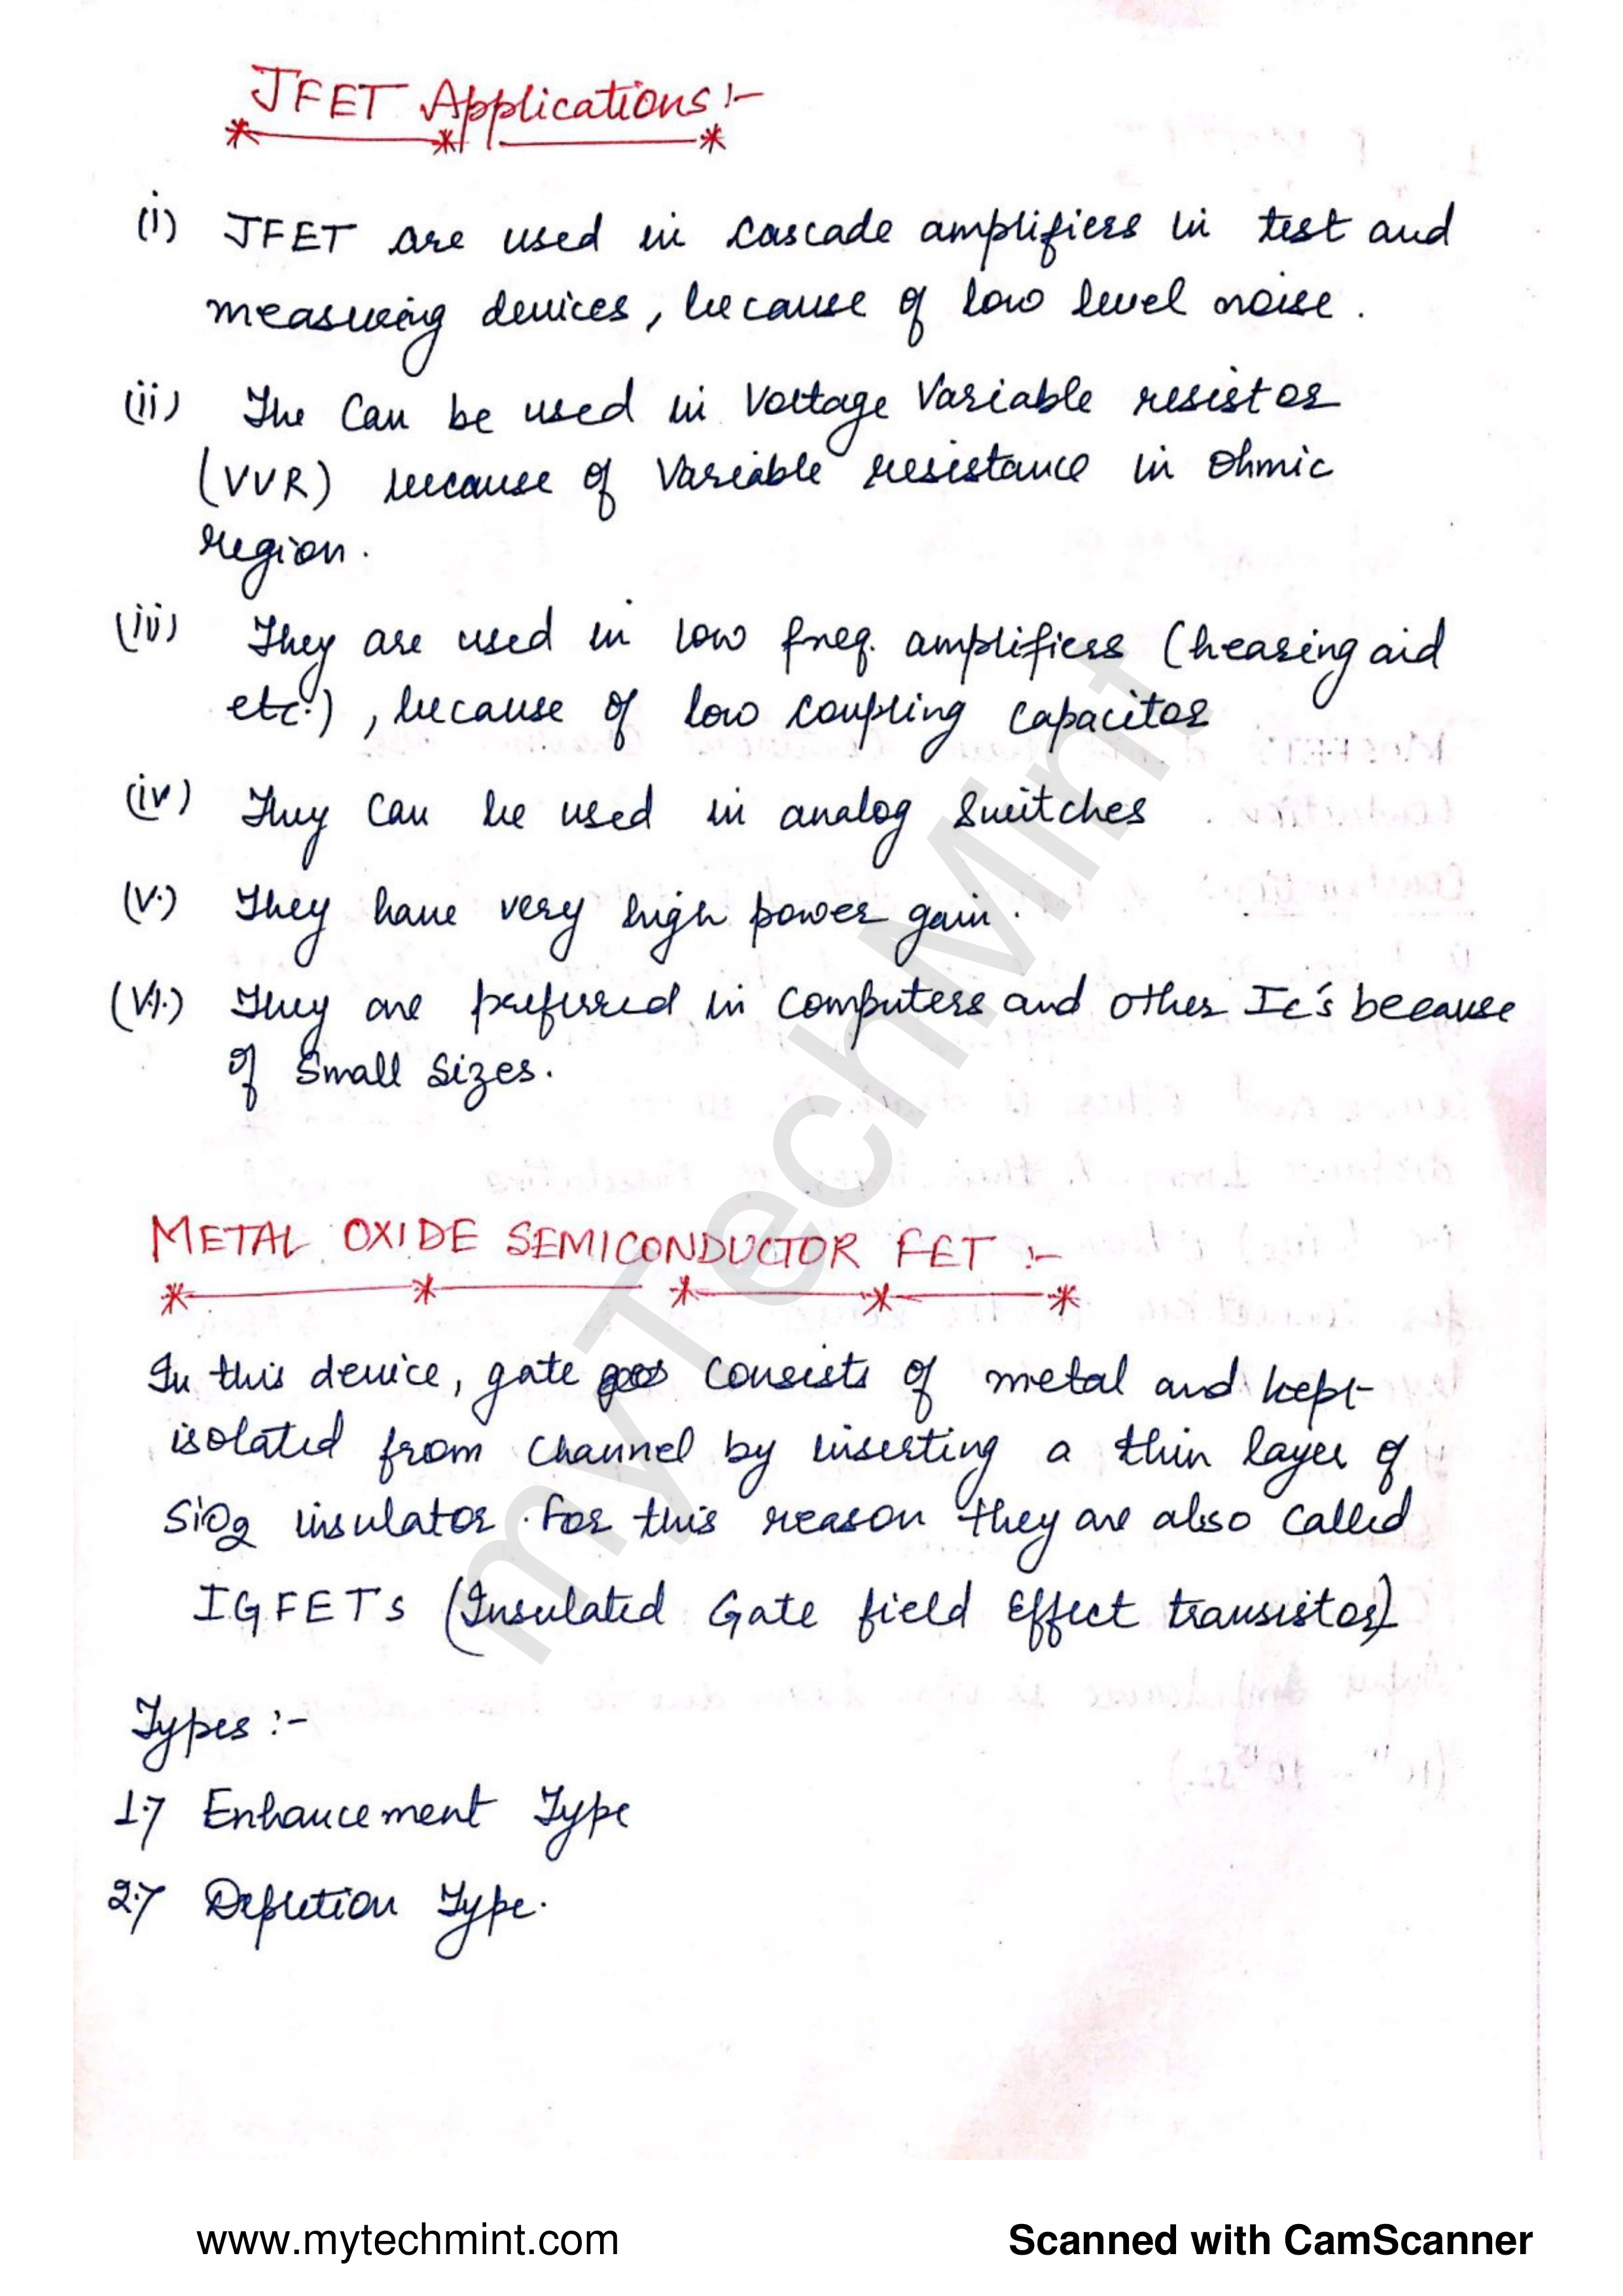 JFET Applications :-
(i) JFET are used in cascade amplifiers in test and
measuring devices, because of low level noise.
(ii) The Can be used in Voltage Variable resistor
(VVR) because of Variable resistance in Ohmic
region.
(iii) They are used in low freq. amplifiers (hearing aid
etc.), because of low coupling capacitor
(iv) They Can be used in analog Switches
(V.) They have very high power gain.
(Vi.) They are preferred in Computers and other Ic's because
of Small Sizes.
METAL OXIDE SEMICONDUCTOR FET :-
In this device, gate Consists of metal and kept
isolated from Channel by inserting a thin layer of
SiO2 insulator. For this reason they are also Called
IGFETs (Insulated Gate field Effect transistor)
Types :-
1.> Enhancement Type
2.> Depletion Type.
myTechMint
www.mytechmint.com
Scanned with CamScanner